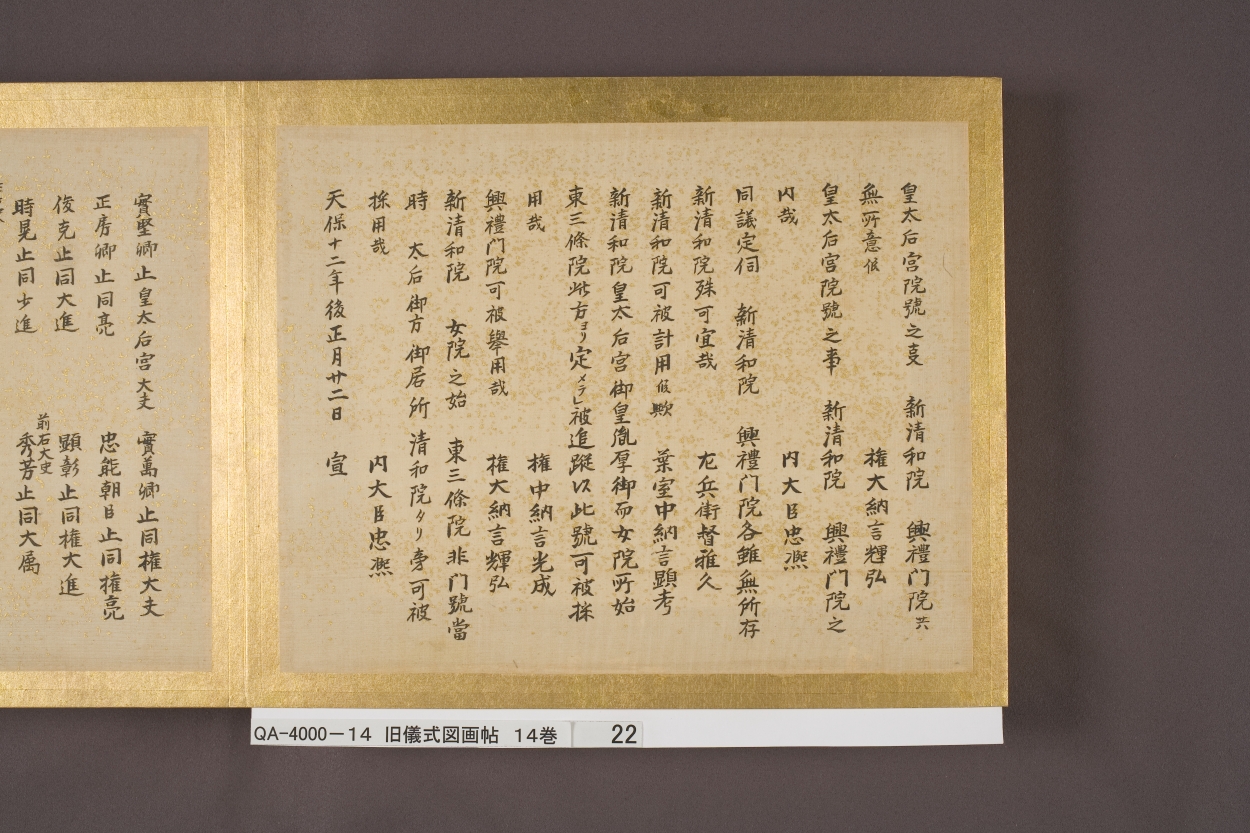 皇太后宮院號之叓 新清和院 興禮門院共
無所意候
權大納言輝弘
皇太后宮院號之事 新清和院 興禮門院之
内哉
内大臣忠熈
同議定伺 新清和院 興禮門院各雖無所存
新清和院殊可宜哉
左兵衛督雅久
新清和院可被計用候歟
葉室中納言顕考
新清和院皇太后宮御皇胤厚御而女院所始
東三條院此方ヨリ定メラレ被追蹤以此號可被採
用哉
權中納言光成
興禮門院可被舉用哉
權大納言輝弘
新清和院 女院之始 東三條院非门號當
時 太后御方御居所清和院タリ旁可被
採用哉
内大臣忠熈
天保十二年後正月廿二日 宣
實堅卿止皇太后宮大夫 實萬卿止同權大夫
正房卿止同亮 忠能朝臣止同權亮
俊克止同大進 顕彰止同權大進
時晃止同少進 前右大史秀芳止同大属
QA-4000-14 旧儀式図画帖 14巻 22